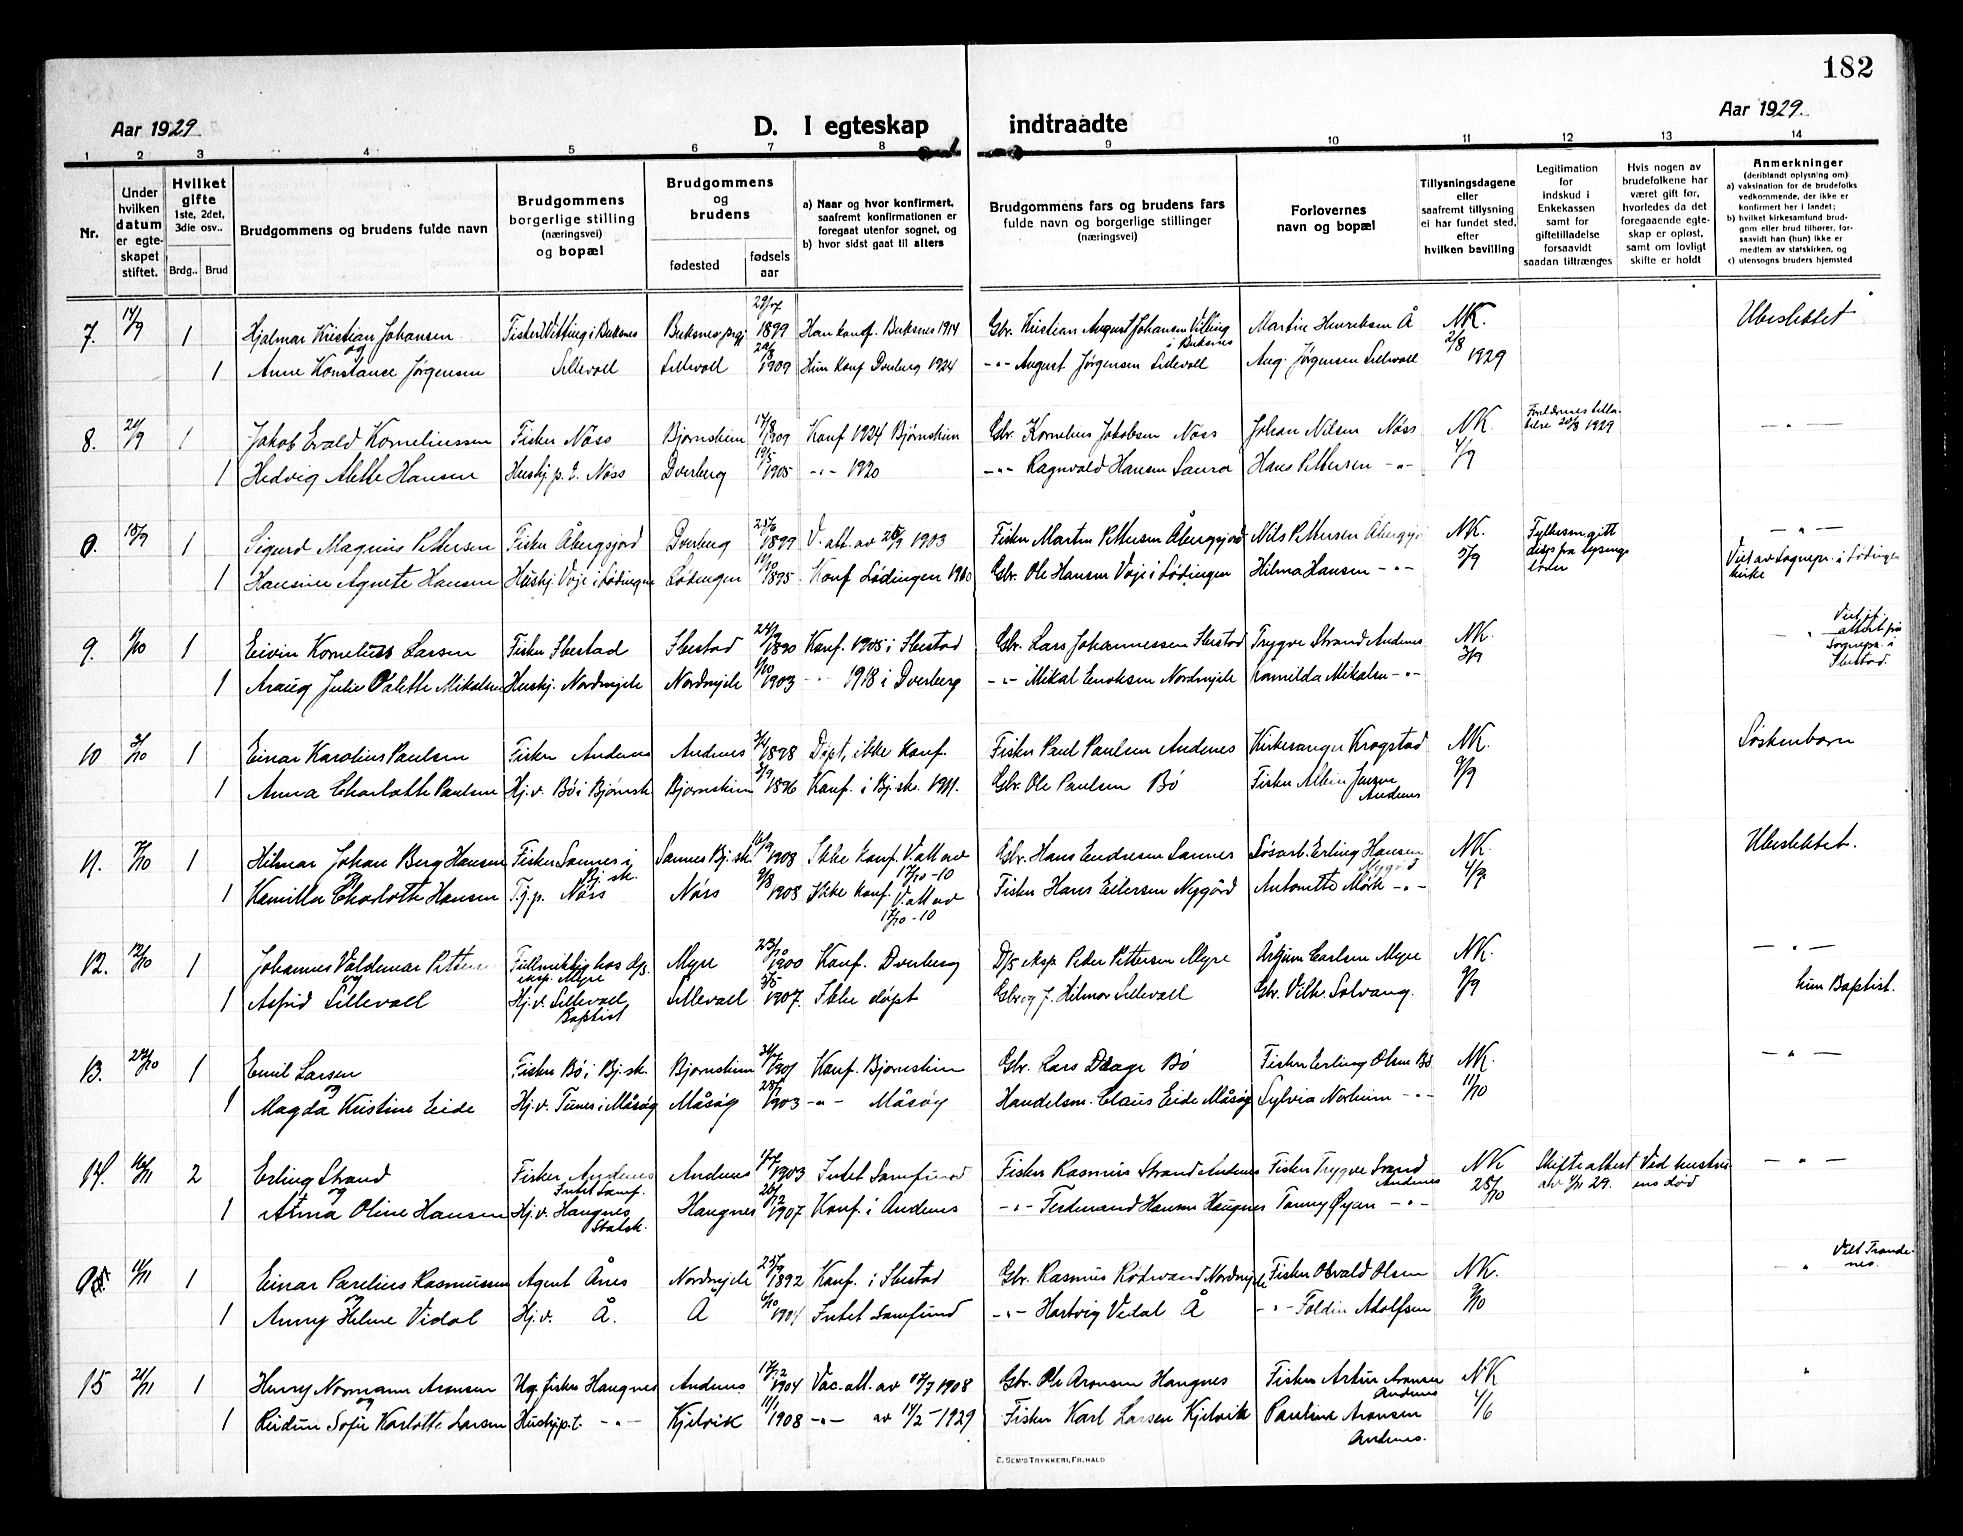 182
Aar 1929
D. I egteskap indtraadte
Aar 1929.
1 2 3 4 5 6 7 8 9 10 11 12 13 14
Nr.
Under hvilken datum er egteskapet stiftet.
Hvilket gifte 1ste, 2det, 3die osv..
Brdg.. Brud
Brudgommens og brudens fulde navn
Brudgommens borgerlige stilling (næringsvei) og bopæl
Brudgommens og brudens
fødested fødsels aar
a) Naar og hvor konfirmert, saafremt konfirmationen er foregaat utenfor sognet, og
b) hvor sidst gaat til alters
Brudgommens fars og brudens fars fulde navn og borgerlige stillinger (næringsvei)
Forlovernes navn og bopæl
Tillysningsdagene eller saafremt tillysning ei har fundet sted, efter hvilken bevilling
Legitimation for indskud i Enkekassen samt for giftetilladelse forsaavidt saadan tiltrænges
Hvis nogen av brudefolkene har været gift før, hvorledes da det foregaaende egteskap er opløst, samt om lovligt skifte er holdt
Anmerkninger (deriblandt oplysning om)
a) vaksination for de brudefolks vedkommende, der ikke er konfirmert her i landet;
b) hvilket kirkesamfund brudgom eller brud tilhører, forsaavidt han (hun) ikke er medlem av statskirken, og
c) utensogns bruders hjemsted
7. 14/9 1 Hjalmar Kristian Johansen Fisker Vitting i Buksnes Buksnes prgj 29/ 1899 Han konf. Buksnes 1914 Gbr. Kristian August Johansen Vitting i Buksnes Martin Henriksen Å NK. 2/8 1929 Ubeslektet
og
1 Anne Konstance Jørgensen Sellevoll Sellevoll 1909 Hun konf Dverberg 1924 -"- August Jørgensen Sellevoll Aug. Jørgensen Sellevoll
8. 21/9 1 Jakob Evald Korneliussen Fisker Nöss Bjørnskin 17/8 1909 Konf 1924 Bjørnskin Gbr. Kornelius Jakobsen Nöss Johan Nilsen Nöss NK. 4/9 Foreldrenes tillatelse 1929 - " -
1 Hedvig Alette Hansen Hushj. p. t. Nöss Dverberg 19/5 1905 -"- 1920 -"- Ragnvald Hansen Saura Hans Pettersen -"-
0. 15/9 1 Sigurd Magnus Pettersen Fisker Åbergsjord Dverberg 1899 V. att. av 1903 Fisker Martin Pettersen Åbergsjord Nils Pettersen Åbergsj NK. 5/9 Fylkesm gitt disp fra lysnings - " -
1 Hansine Agnete Hansen Hushj. Voje i Lödingen Lödingen 1895 Konf Lödingen 1910 Gbr. Ole Hansen Voje i Lödingen Hilma Hansen -"- Viet av sognepr. i Lödingen kirke
9. 1 Eivin Kornelius Larsen Fisker Ibestad Ibestad 1890 Konf. 1905 i Ibestad Gbr. Lars Johannessen Ibestad Trygve Strand Andenes NK. 3/9 - " - Viet attest fra Sognepr. i Ibestad.
1 Araug Julie Valette Mikalsen Hushj. Nordmjele Nordmjele 1903 -"- 1918 i Dverberg -"- Mikal Enoksen Nordmjele Romilda Mikalsen -"-
10 3/10 1 Einar Karolius Paulsen Fisker Andenes Andenes 1898 Døpt, ikke konf. Fisker Paul Paulsen Andenes Kirkesanger Krogstad NK. 9/9 Søskenbarn
1 Anna Charlotte Paulsen Hj. v. Bö i Bjørnsk Bjørnskin 1896 Konf. i Bj. sk. 1911. Gbr. Ole Paulsen Bö Fisker Albin Jensen Andenes
11. 1 Hilmar Johan Berg Hansen Fisker Sannes i Bj. sk. Sannes Bj. sk. 1908 Ikke konf. V. att av 17/10-10 Gbr. Hans Endresen Sannes Løsarb. Erling Hansen Nygård NK. Ubeslektet.
og
1 Kamilla Charlotte Hansen Tj. p. Nöss Nöss 9/8 1908 Ikke konf. V. att av 17/10-10 Fisker Hans Eilersen Nyggård Antonette Mörk -"-
12. 12/10 1 Johannes Valdemar Petters Fullmektig hos dsp. eksp. Myre Myre 23/ 1900 Konf. Dverberg D/S eksp. Peder Pettersen Myre Carlsen Myre NK. 9/9 - " -
og
1 Astrid Sellevoll Hj. v. Sellevoll, Baptist Sellevoll 1907. Ikke døpt Gbr. og f. Hilmar Sellevoll Gbr. Vilh. Solvang. hun Baptist.
13. 1 Emil Larsen Fisker Bö i Bj. sk. Bjørnskin 1901 Konf. Bjørnskin Gbr. Lars Daage Bö Fisker Erling Olsen Bö NK. 11/10 - " -
og
1 Magda Kristine Eide Hj. v. Tunes i Måsöy Måsöy 1903 -"- Måsöy Handelsm. Claus Eide Måsöy Sylvia Norheim -"-
14. 10/11 2 Erling Strand Fisker Andenes Intet Samf. Andenes 1903 Intet Samfund Fisker Rasmus Strand Andenes Fisker Trygve Strand Andenes NK 28/10 Skifte attest av 29. Ved hustruens död - " -
og
1 Alma Oline Hansen Hj. v. Haugnes Statsk. Haugnes 1907 Konf. i Andenes -"- Ferdinand Hansen Haugnes Tonny Öyan -"-
1 Einar Parelius Rasmussen Agent Ånes Nordmjele 1892 Konf. i Ibestad Gbr. Rasmus Rödsand Nordmjele Fisker Osvald Olsen NK. 9/10 - " - Viet Trondenes.
og
1 Anny Helene Vidal Hj. v. Å. Å 1904 Intet samfund -"- Hartvig Vidal Å -"- Toldin Adolfsen
15 21/11 1 Henry Normann Aronsen Ug. fisker Haugnes Andenes 1904 Vac. att. av 17/7 1908 Gbr. Ole Aronsen Haugnes Fisker Artur Aronsen Andenes NK 4/6 "
og
1 Reidun Sofie Karlotte Larsen Hushj. p. t. -"- Kjelvik 11/1 1908 -"- av 14/2 - 1929 Fisker Karl Larsen Kjelvik Pauline Aronsen Andenes.
E. SEM'S TRYKKERI, FR. HALD